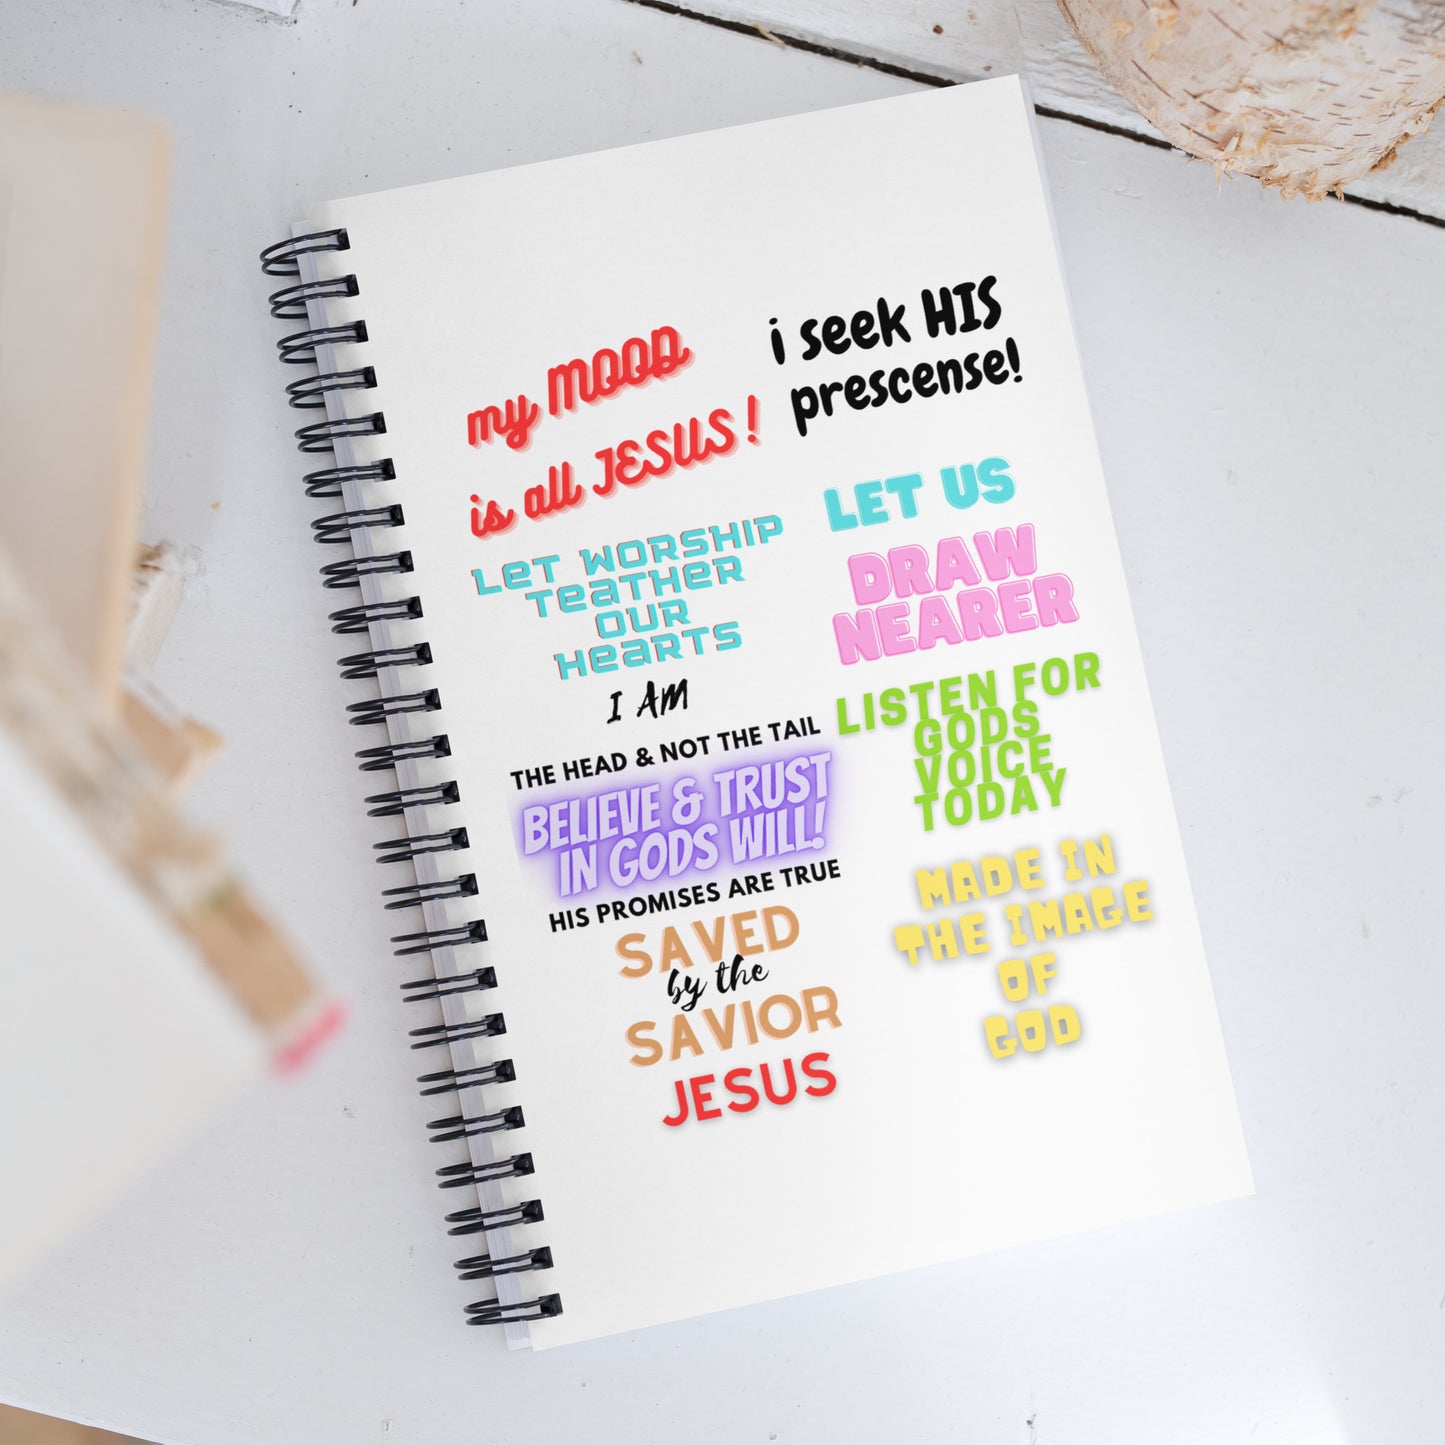 my MOOD
is all JESUS!
LET WORSHIP
TEATHER
OUR
HEARTS
I AM
THE HEAD & NOT THE TAIL
BELIEVE & TRUST
IN GODS WILL!
HIS PROMISES ARE TRUE
SAVED
by the
SAVIOR
JESUS
i seek HIS
prescense!
LET US
DRAW
NEARER
LISTEN FOR
GODS
VOICE
TODAY
MADE IN
THE IMAGE
OF
GOD